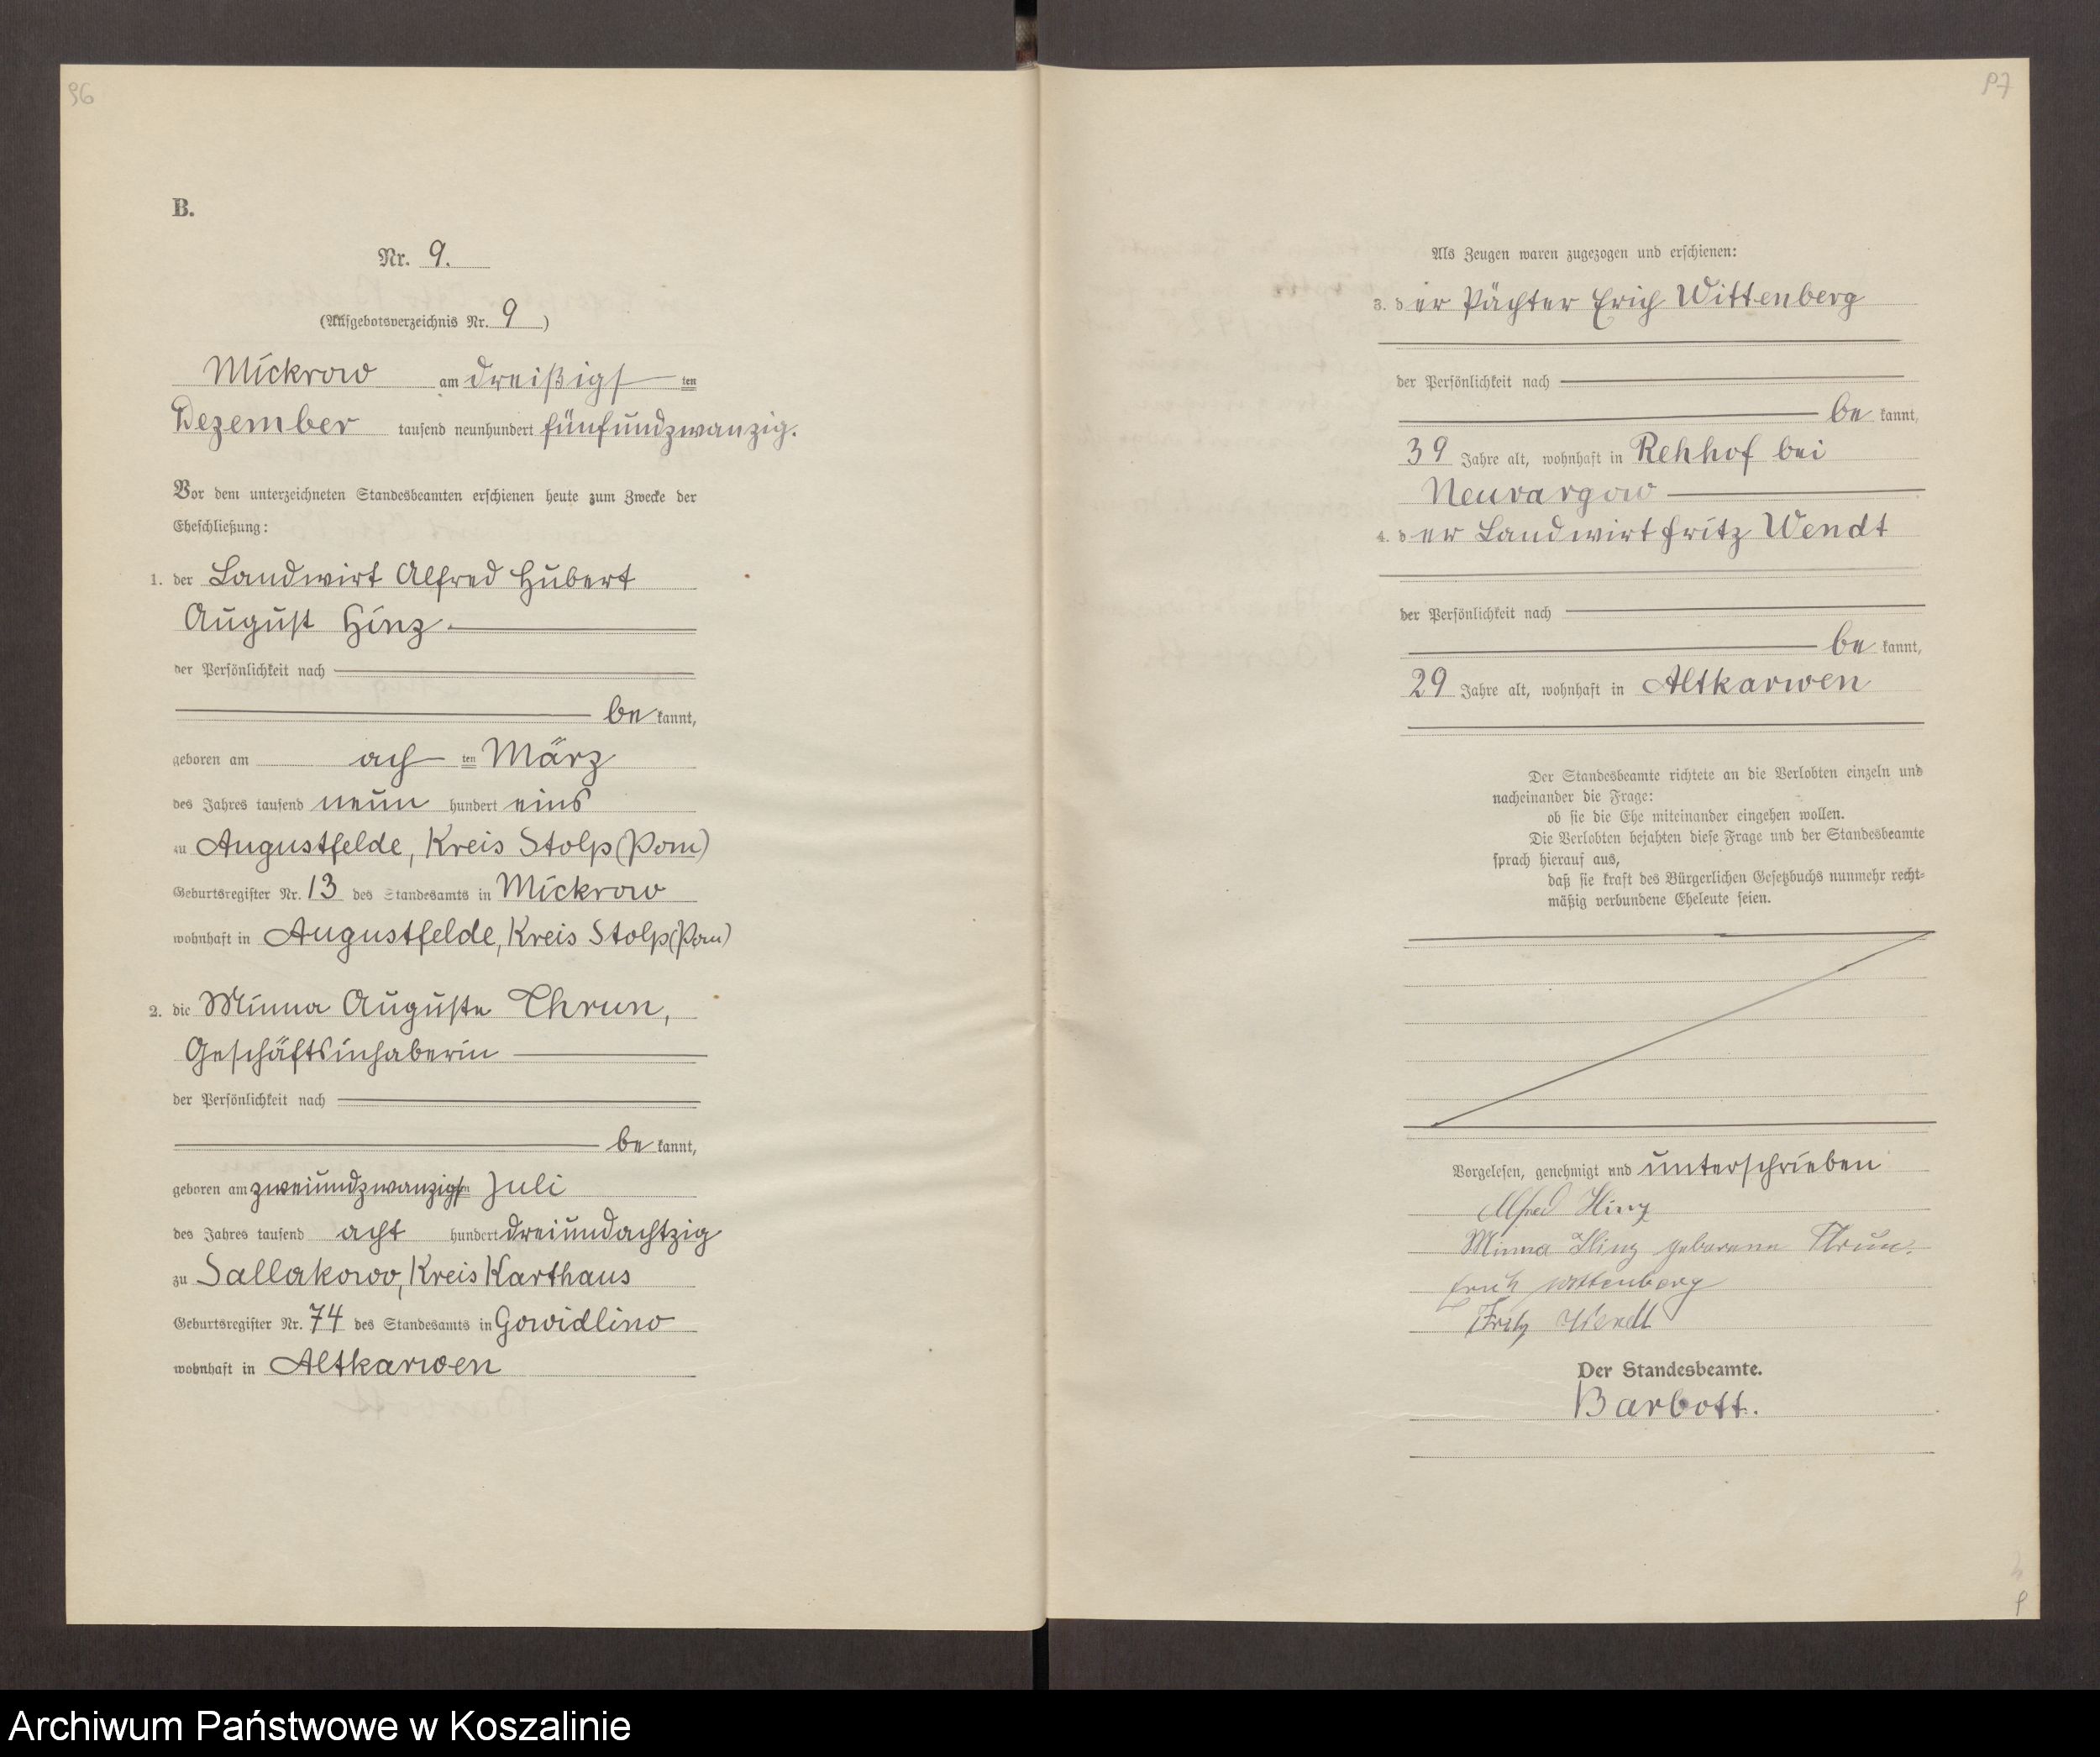 96
B.
Nr. 9.
(Aufgebotsverzeichnis Nr. 9)
Mickrow am dreißigsten
Dezember tausend neunhundert fünfundzwanzig.
Vor dem unterzeichneten Standesbeamten erschienen heute zum Zwecke der
Eheschließung:
1. der Landwirt Alfred Hubert
August Hinz.
der Persönlichkeit nach
bekannt,
geboren am achten März
des Jahres tausend neun hundert eins
zu Augustfelde, Kreis Stolp (Pom)
Geburtsregister Nr. 13 des Standesamts in Mickrow
wohnhaft in Augustfelde, Kreis Stolp (Pom)
2. die Minna Auguste Thrun,
Geschäftsinhaberin
der Persönlichkeit nach
bekannt,
geboren am zweiundzwanzigsten Juli
des Jahres tausend acht hundert dreiundachtzig
zu Sallakowo, Kreis Karthaus
Geburtsregister Nr. 74 des Standesamts in Gowidlino
wohnhaft in Altkarwen
97
Als Zeugen waren zugezogen und erschienen:
3. der Pächter Erich Wittenberg
der Persönlichkeit nach
bekannt,
39 Jahre alt, wohnhaft in Rehhof bei
Neuvargow
4. der Landwirt Fritz Wendt
der Persönlichkeit nach
bekannt,
29 Jahre alt, wohnhaft in Altkarwen
Der Standesbeamte richtete an die Verlobten einzeln und
nacheinander die Frage:
ob sie die Ehe miteinander eingehen wollen.
Die Verlobten bejahten diese Frage und der Standesbeamte
sprach hierauf aus,
daß sie kraft des Bürgerlichen Gesetzbuchs nunmehr recht-
mäßig verbundene Eheleute seien.
Vorgelesen, genehmigt und unterschrieben
Alfred Hinz
Minna Hinz geborene Thrun.
Erich Wittenberg
Fritz Wendt
Der Standesbeamte.
Barbott.
Archiwum Państwowe w Koszalinie